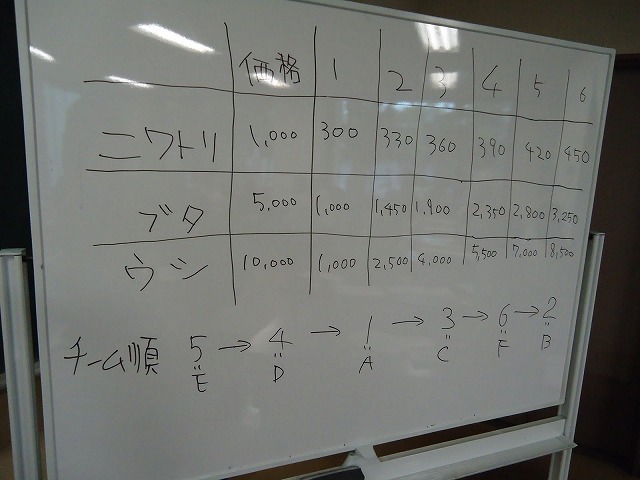 価格 1 2 3 4 5 6
ニワトリ 1,000 300 330 360 390 420 450
ブタ 5,000 1,000 1,450 1,900 2,350 2,800 3,250
ウシ 10,000 1,000 2,500 4,000 5,500 7,000 8,500
チーム順 5 → 4 → 1 → 3 → 6 → 2
" " " " " "
E D A C F B